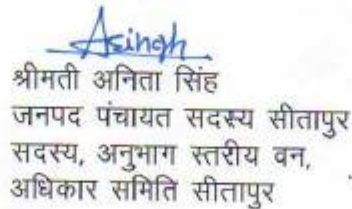 Asingh
श्रीमती अनिता सिंह
जनपद पंचायत सदस्य सीतापुर
सदस्य, अनुभाग स्तरीय वन,
अधिकार समिति सीतापुर